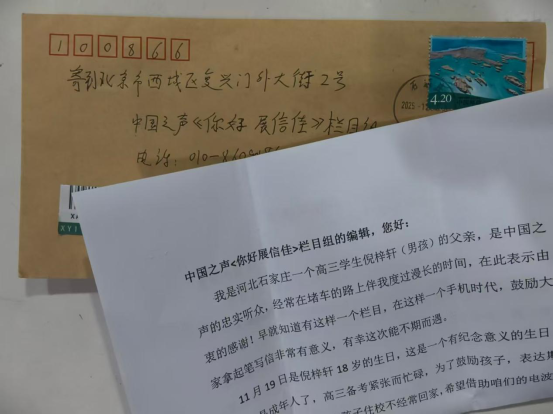 100866
寄到北京市西城区复兴门外大街2号
中国之声《你好 展信佳》栏目组
电话：010-
4.20
2025
中国之声<你好展信佳>栏目组的编辑，您好：
我是河北石家庄一个高三学生倪梓轩（男孩）的父亲，是中国之
声的忠实听众，经常在堵车的路上伴我度过漫长的时间，在此表示由
衷的感谢！早就知道有这样一个栏目，在这样一个手机时代，鼓励大
家拿起笔写信非常有意义，有幸这次能不期而遇。
11月19日是倪梓轩18岁的生日，这是一个有纪念意义的生日
是成年人了，高三备考紧张而忙碌，为了鼓励孩子，表达
孩子住校不经常回家，希望借助咱们的电波